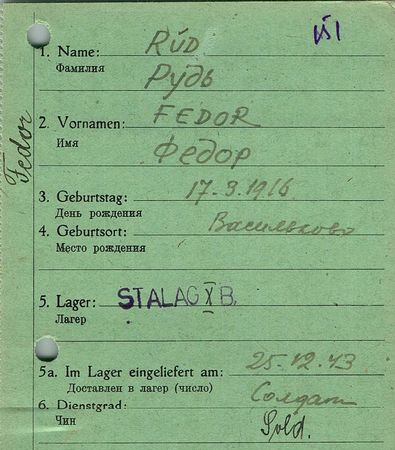 VSI
1. Name: RŬD
Фамилия РУДЬ
2. Vornamen: FEDOR
Имя Федор
Fedor
3. Geburtstag: 17-3.1916
День рождения
4. Geburtsort: Васильково
Место рождения
5. Lager: STALAG X B.
Лагер
5a. Im Lager eingeliefert am: 25.12.43
Доставлен в лагер (число)
6. Dienstgrad: Солдат
Чин Sold.